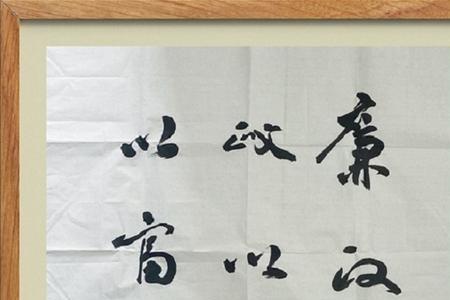 廉
政以
以富